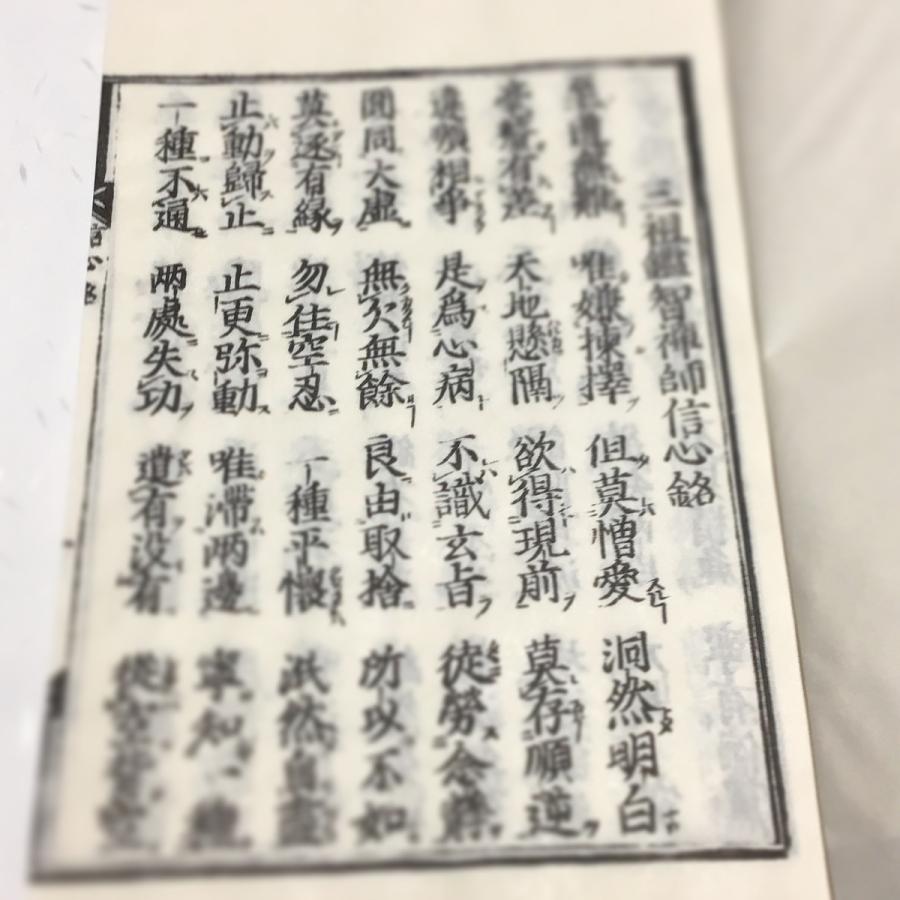 三祖鑑智禅師信心銘
至道無難 唯嫌揀擇 但莫憎愛 洞然明白
毫釐有差 天地懸隔 欲得現前 莫存順逆
違順相爭 是爲心病 不識玄旨 徒勞念靜
圓同大虚 無欠無餘 良由取捨 所以不如
莫逐有縁 勿住空忍 一種平懷 泯然自盡
止動歸止 止更弥動 唯滯兩邊 寧知一種
一種不通 兩處失功 遣有没有 從空背空
信心銘